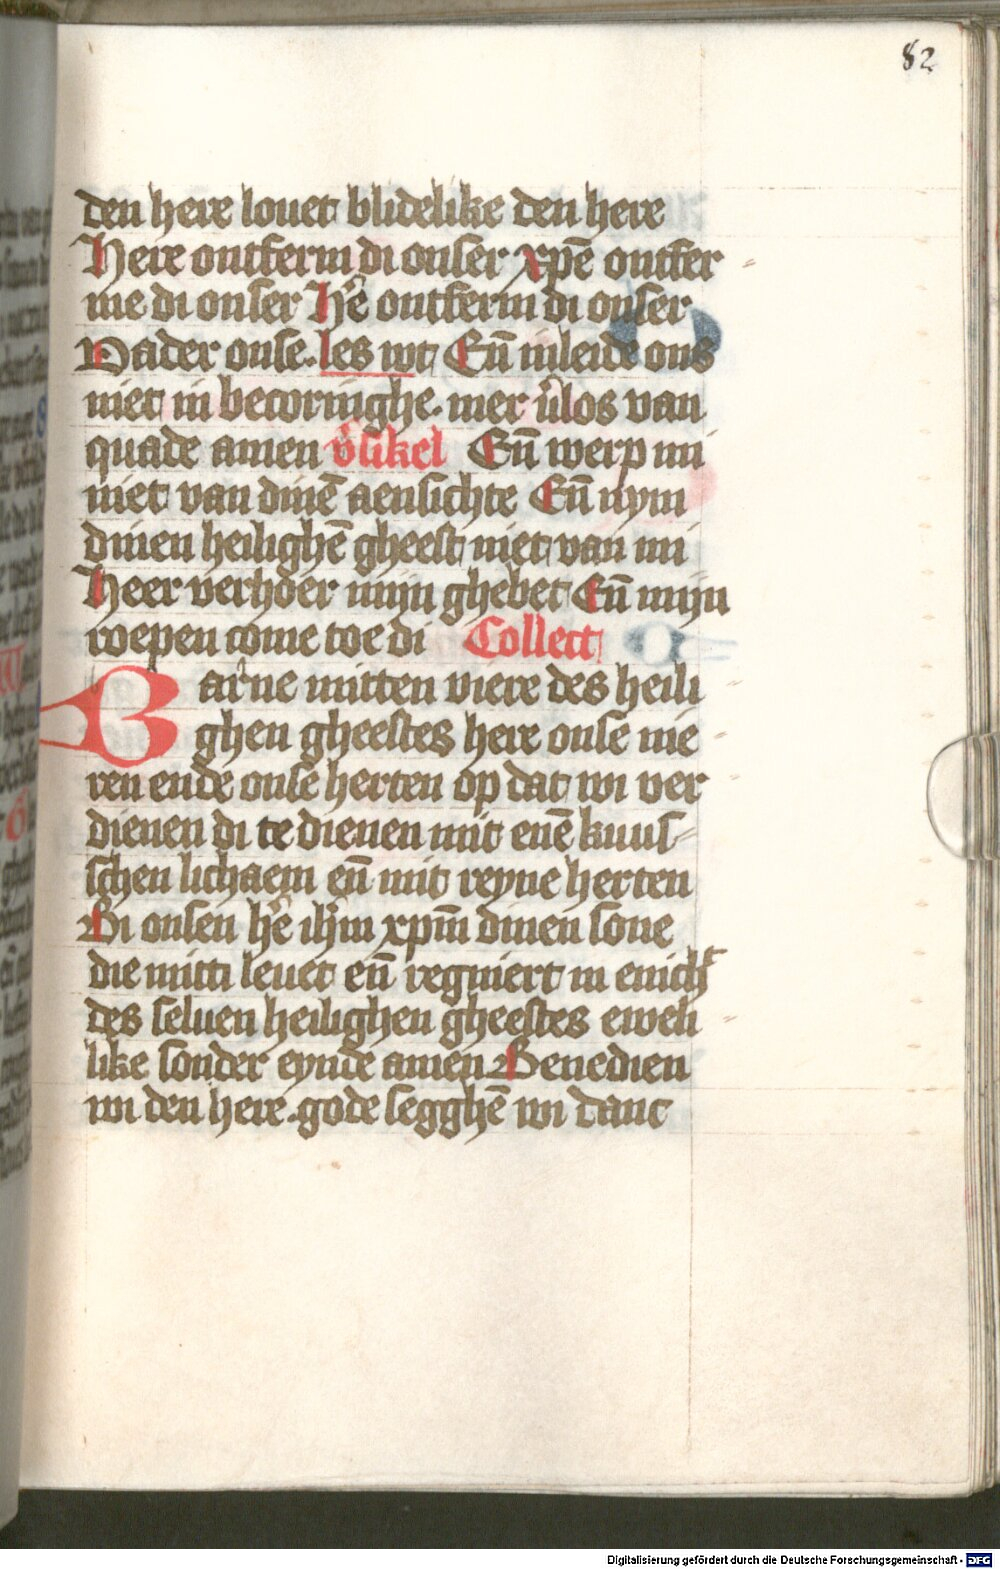 82
den here louet blidelike den here
Here ontferm di onser xpē ontfer
me di onser He͛ ontferm di onser
Vader onse. les wt Eñ inleide ons
niet in becoringhe. mer v͛los van
quade amen v͛sikel Eñ werp mi
niet van dinē aensichte Eñ nym
dinen heilighē gheest niet van mi
Heer verhoer mijn ghebet Eñ mijn
roepen come toe di Collect
Barne mitten viere des heili
ghen gheestes here onse nie
ren ende onse herten op dat wi ver
dienen di te dienen mit enē kuus
schen lichaem eñ mit reyne herten
Bi onsen he͛ ihm̄ xpm̄ dinen sone
die mitti leuet eñ regniert in enich
des seluen heilighen gheestes eweli
like sonder eynde amen Benedien
wi den here. gode segghē wi danc
Digitalisierung gefördert durch die Deutsche Forschungsgemeinschaft - DFG